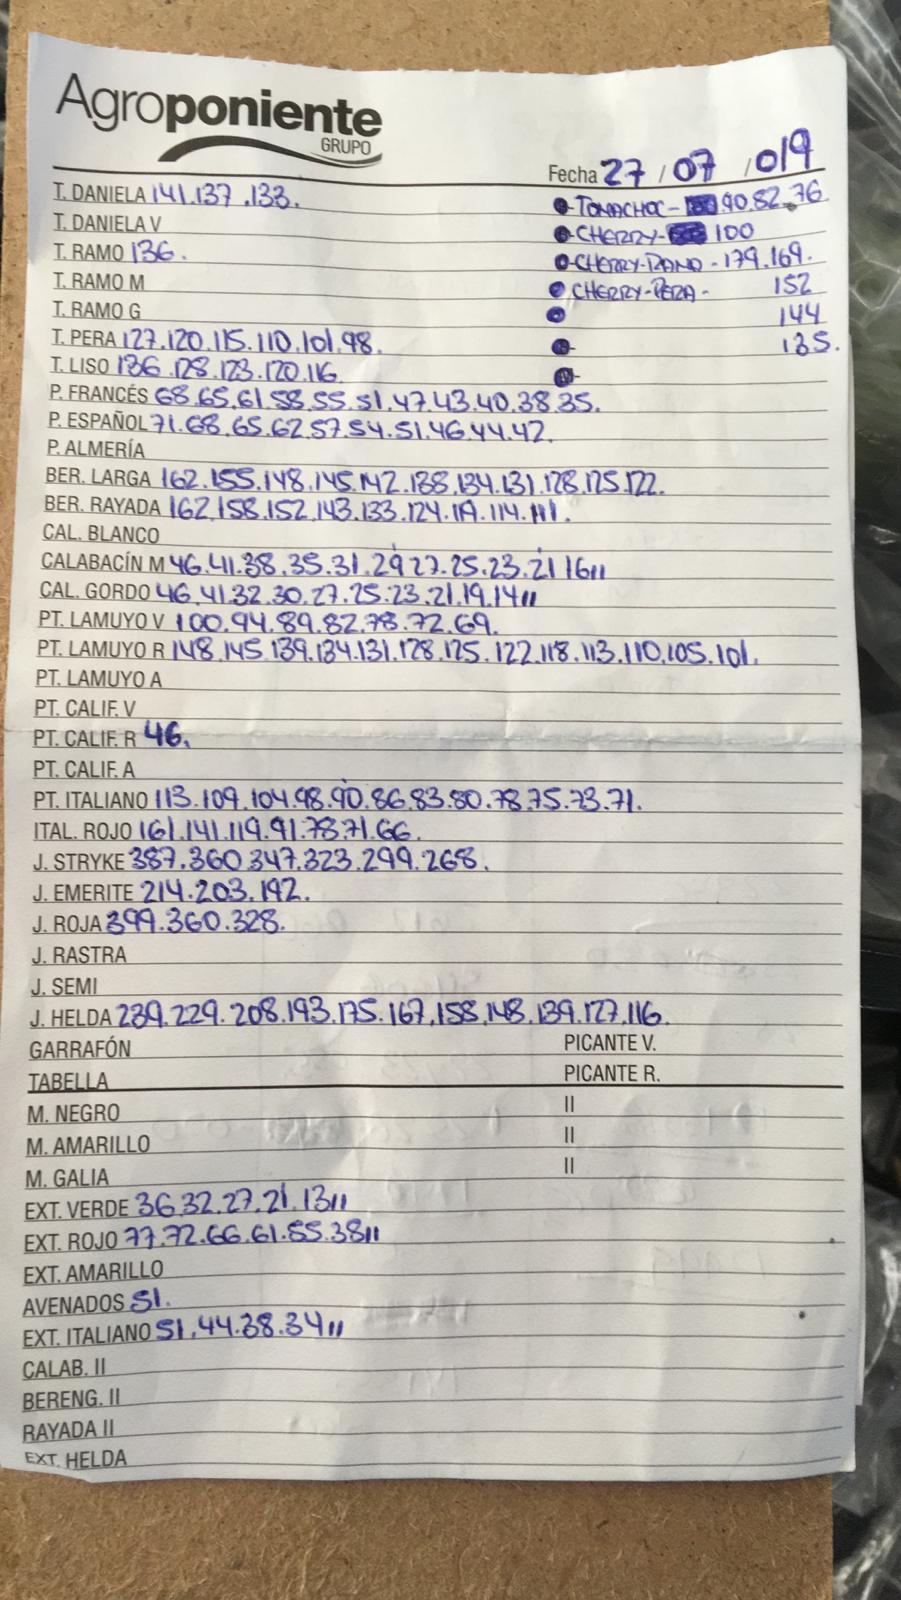 Agroponiente
GRUPO
Fecha 27 / 07 / 019
T. DANIELA 141.137.133.
T. DANIELA V
T. RAMO 136.
T. RAMO M
T. RAMO G
T. PERA 127.120.115.110.101.98.
T. LISO 136.128.123.120.116.
TOMACHOC - 90.82.76
CHERRY - 100
CHERRY-RAMO - 179.169.
CHERRY-PERA - 152
144
135.
P. FRANCÉS 68.65.61.58.55.51.47.43.40.38.35.
P. ESPAÑOL 71.68.65.62.57.54.51.46.44.42.
P. ALMERÍA
BER. LARGA 162.155.148.145.142.138.134.131.128.125.122.
BER. RAYADA 162.158.152.143.133.124.119.114.111.
CAL. BLANCO
CALABACÍN M 46.41.38.35.31.29.27.25.23.21.16,,
CAL. GORDO 46.41.32.30.27.25.23.21.19.14,,
PT. LAMUYO V 100.94.89.82.78.72.69.
PT. LAMUYO R 148.145.139.134.131.128.125.122.118.113.110.105.101.
PT. LAMUYO A
PT. CALIF. V
PT. CALIF. R 46.
PT. CALIF. A
PT. ITALIANO 113.109.104.98.90.86.83.80.78.75.73.71.
ITAL. ROJO 161.141.119.91.78.71.66.
J. STRYKE 387.360.347.323.299.268.
J. EMERITE 214.203.192.
J. ROJA 399.360.328.
J. RASTRA
J. SEMI
J. HELDA 239.229.208.193.175.167.158.148.139.127.116.
GARRAFÓN PICANTE V.
TABELLA PICANTE R.
M. NEGRO II
M. AMARILLO II
M. GALIA II
EXT. VERDE 36.32.27.21.13,,
EXT. ROJO 77.72.66.61.55.38,,
EXT. AMARILLO
AVENADOS 51.
EXT. ITALIANO 51.44.38.34,,
CALAB. II
BERENG. II
RAYADA II
EXT. HELDA